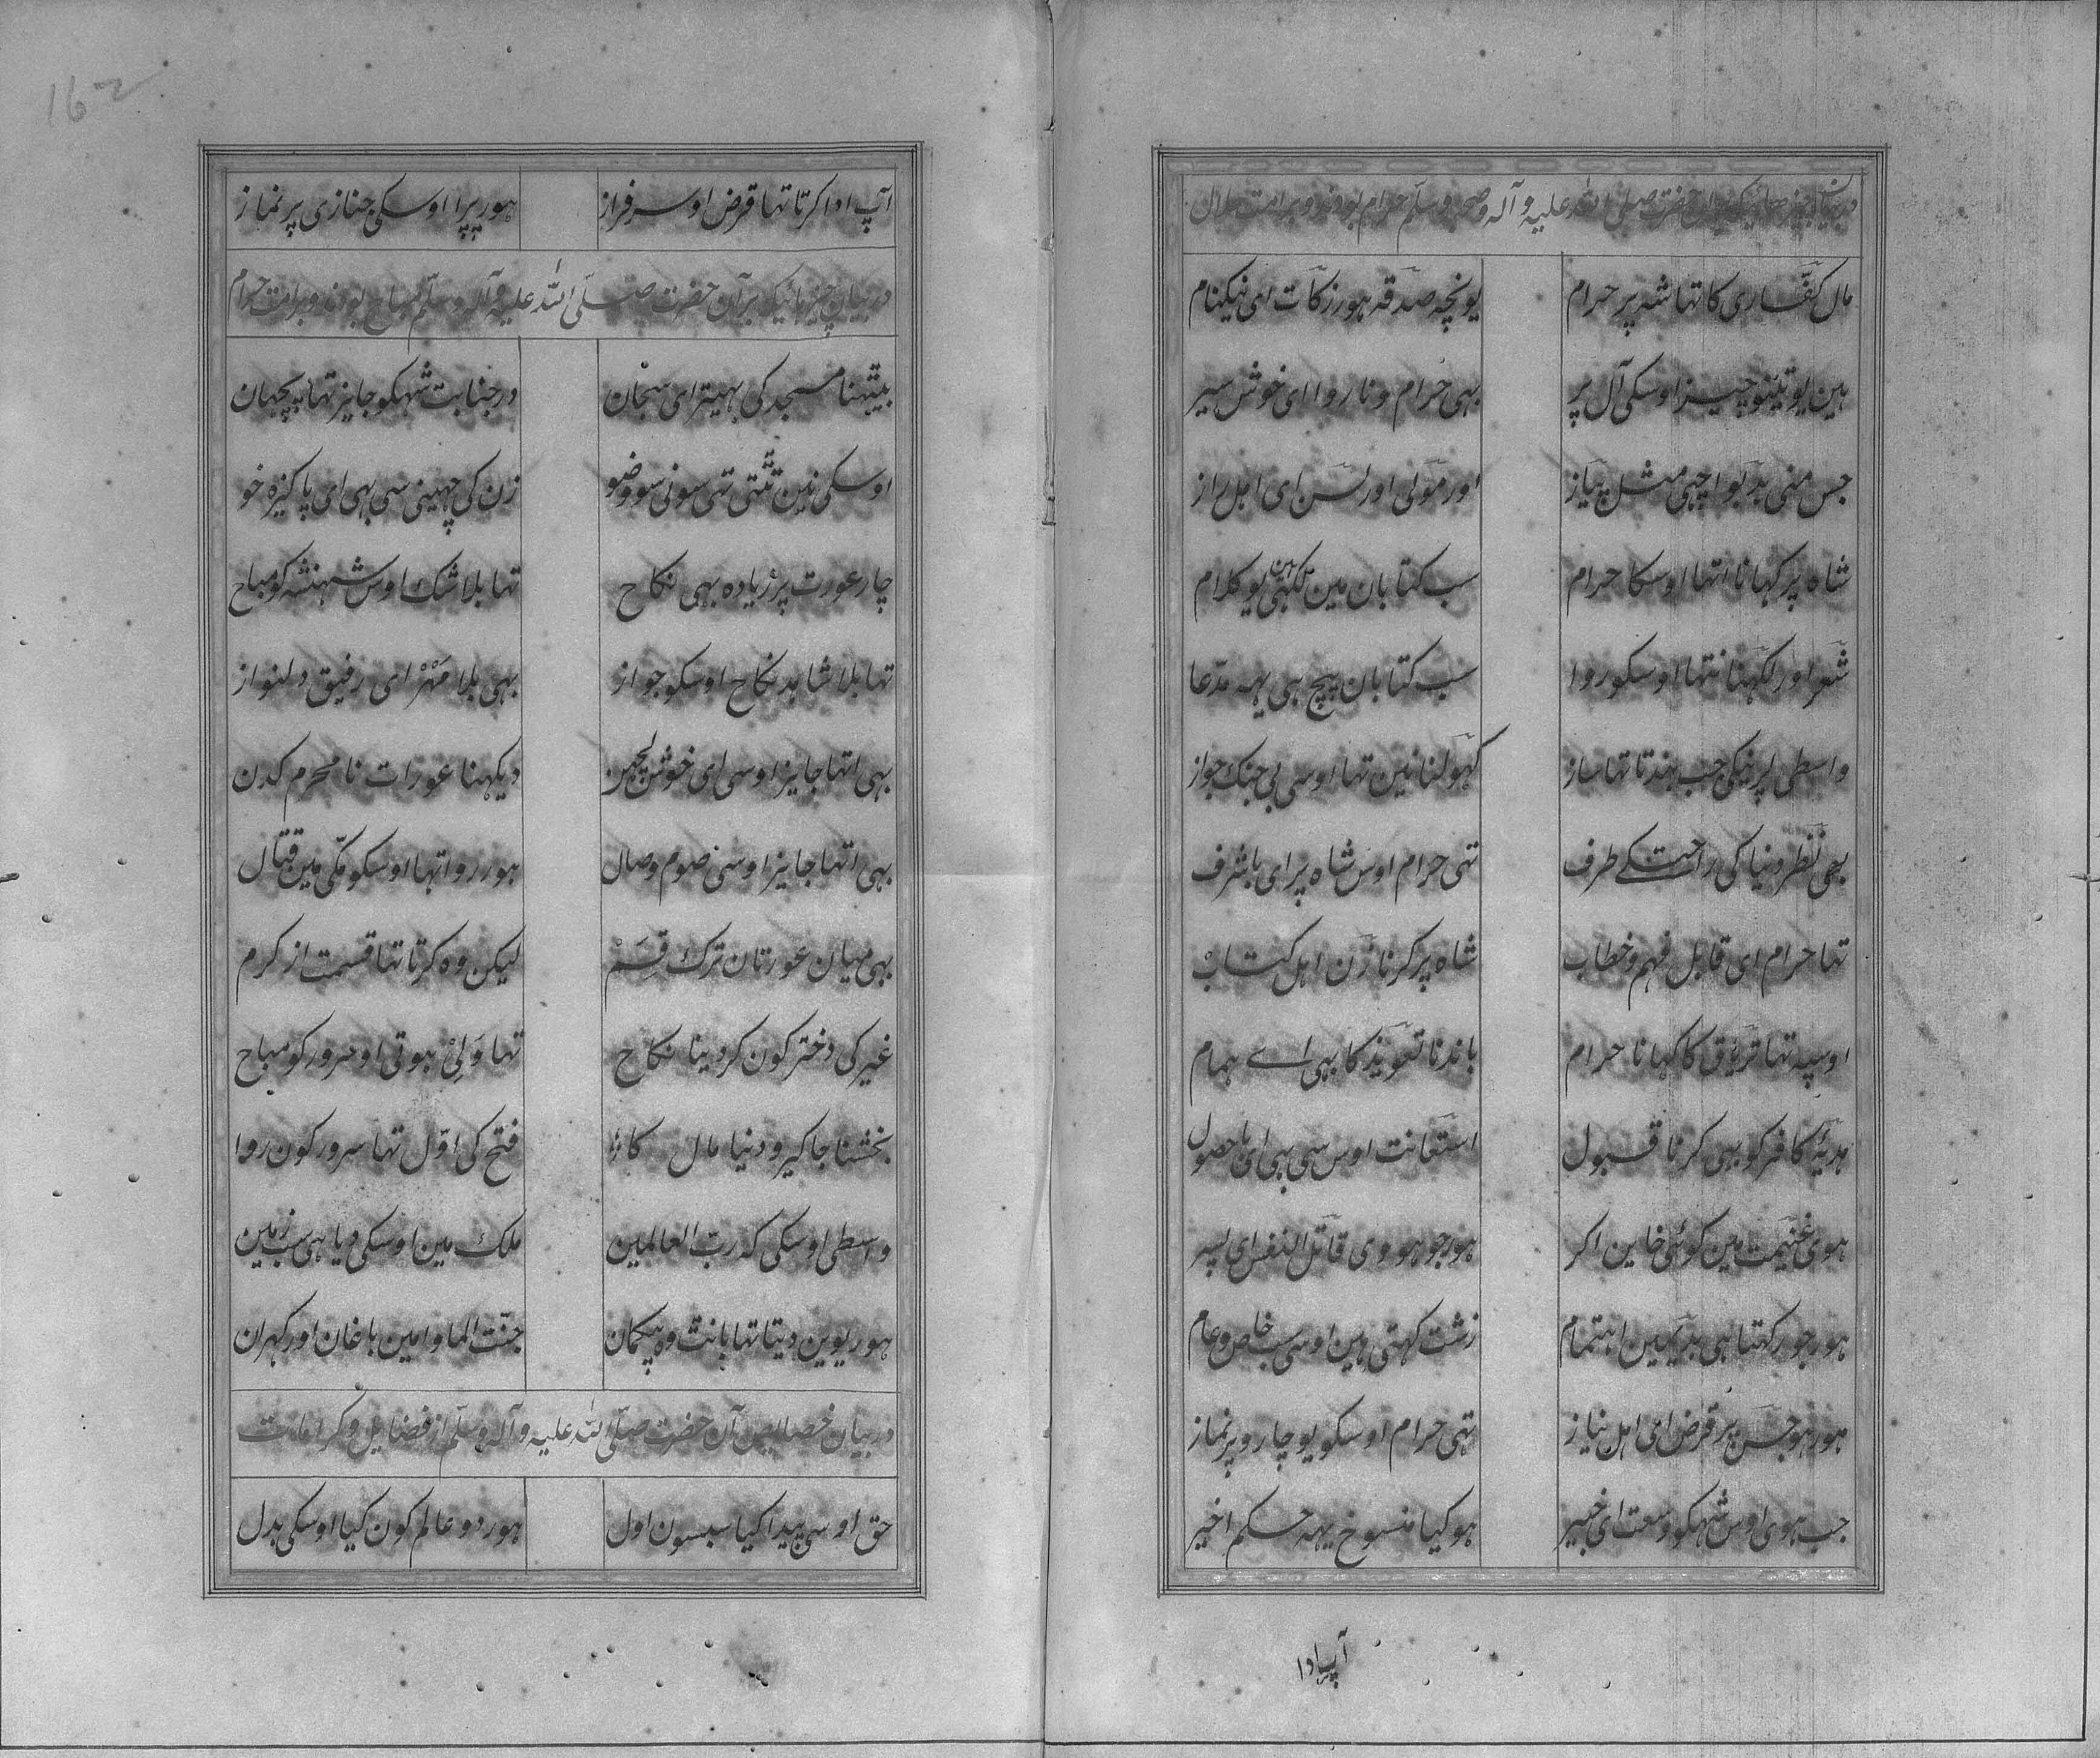 در بیان چیزهائیکه بر آن حضرت صلی الله علیه و آله وصحبه وسلم حرام بودند و بر امت حلال
مال کفّاری کا تها شه پر حرام یونچه صدقه هور زکات ای نیکنام
هین یو تینو چیز اوسکی آل پر بهی حرام و ناروا ای خوش سیر
جس منی بدبو اچهی مثل پیاز اور مولی اور لسن ای اهل راز
شاه پر کهانا اتها اوسکا حرام سب کتابان مین لکهی هین یو کلام
شعر اور لکهنا نتها اوسکو روا سب کتابان بیچ هی یهه مدّعا
واسطی لڑنیکی جب بندتا تها ساز کهولنا نین تها اوسی بی جنک جواز
بهی نظر دنیا کی راحت کے طرف تهی حرام اوس شاه پر ای با شرف
تها حرام ای قابل فهم و خطاب شاه پر کرنا زن اهل کتاب
اوسپه تها تریاق کا کهانا حرام باندنا تعویذ کا بهی اے همام
هدیهٔ کافر کو بهی کرنا قبول استعانت اوس سی بهی ای با حصول
هوی غنیمت مین کوئی خاین اکر هور جو هووی قاتل النفس ای پسر
هور جو رکهتا هی بدیمین اهتمام زشت کهتی هین اوسی سب خاص و عام
هور هو جس پر قرض ای اهل نیاز تهی حرام اوسکو یو چارو پر نماز
جب هوی اوس شهکو وسعت ای خبیر هو کیا منسوخ یهه حکم اخیر
آپ ادا
آپ ادا کرتا تها قرض او سرفراز هور پڑا اوسکی جنازی پر نماز
در بیان چیزهائیکه بر آن حضرت صلّی الله علیه و آله وسلّم مباح بودند و بر امت حرام
بیٹهنا مسجد کی بهیتر ای سجان در جنابت شهکو جایز تها پچهان
اوسکی نین ٹٹتی تهی سونی سو وضو زن کی چهینی سی بهی ای پاکیزه خو
چار عورت پر زیاده بهی نکاح تها بلا شک اوس شهنشه کو مباح
تها بلا شاهد نکاح اوسکو جواز بهی بلا مَهْرْ ای رفیق دلنواز
بهی اتها جایز اوسی ای خوش لچهن دیکهنا عورات نامحرم کدن
بهی اتها جایز اوسی صوم وصال هور روا تها اوسکو مکّی مین قتال
بهی میان عورتان ترک قِسَمْ لیکن وه کرتا تها قسمت از کرم
غیر کی دختر کون کر دینا نکاح تها وَلِیْ هوتی او سرور کو مباح
بخشنا جاکیر و دنیا مال کا فتح کی اوّل تها سرور کون روا
واسطی اوسکی که ربّ العالمین ملک مین اوسکی دیا هی سب زمین
هور یوین دیتا تها بانٹ وه بیکمان جنّت الماوا مین باغان اور کهران
در بیان خصایص آن حضرت صلّی الله علیه و آله وسلّم از فضایل و کرامات
حق اوسی پیدا کیا سبسون اول هور دو عالم کون کیا اوسکی بدل